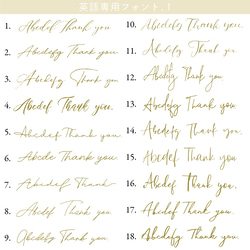 英語専用フォント.1
1. Abcdef Thank you
2. Abcdefg Thank you
3. Abcdefg Thank you
4. Abcdef Thank you.
5. Abcdef Thank you
6. Abcde Thank you
7. Abcdef Thank
8. Abcdef Thank you
9. Abcdefg Thank you
10. Abcdefg Thank you.
11. Abcdefg Thank you
12. Abcdefg Thank you
13. Abcdefg Thank you
14. Abcdef Thank you
15. Abcdef Thank you
16. Abcdef Thank you.
17. Abcdef Thank you
18. Abcdefg Thank you